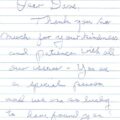 Dear Dene,
Thank you so
much for your kindness
and patience with all
our - You are
a special person
and we are so lucky
to have found you